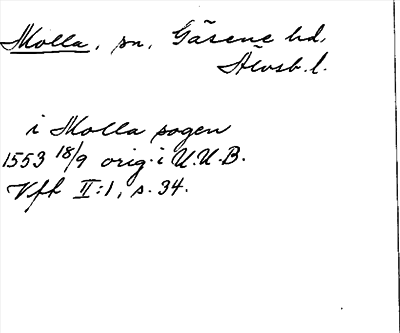 Molla, sn, Gäsene hd,
Älvsb. l.
i Molla sogen
1553 18/9 orig. i U.U.B.
Vfh II:1, s. 34.